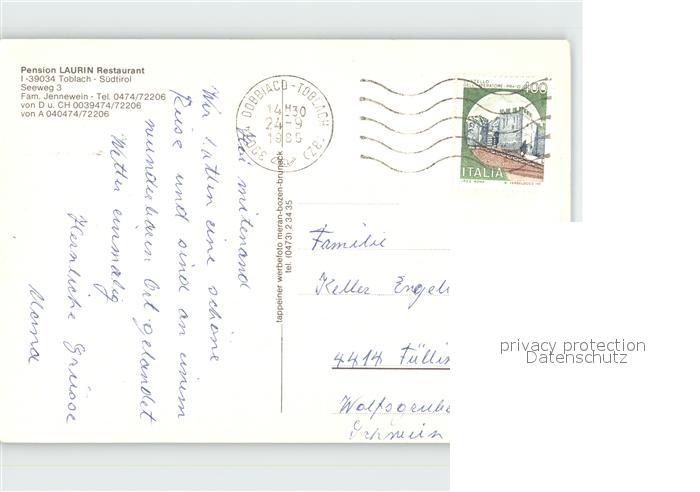 Pension LAURIN Restaurant
I-39034 Toblach - Südtirol
Seeweg 3
Fam. Jennewein - Tel. 0474/72206
von D u. CH 0039474/72206
von A 040474/72206
DOBBIACO-TOBLACH (BZ)
14-30
24-9
1985
CASTELLO
DELL'IMPERATORE-PRATO
400
ITALIA
I.P.Z.S. ROMA
tappeiner werbefoto meran-bozen-bruneck
tel. (0473) 2 34 35
mitenand
Wir hatten eine schöne
Reise und sind an einem
wunderbaren Ort gelandet
Wetter einmalig
Herzliche Grüsse
Familie
Keller Engel
4414 Füllin
Wolfsgrube
Schweiz
privacy protection
Datenschutz